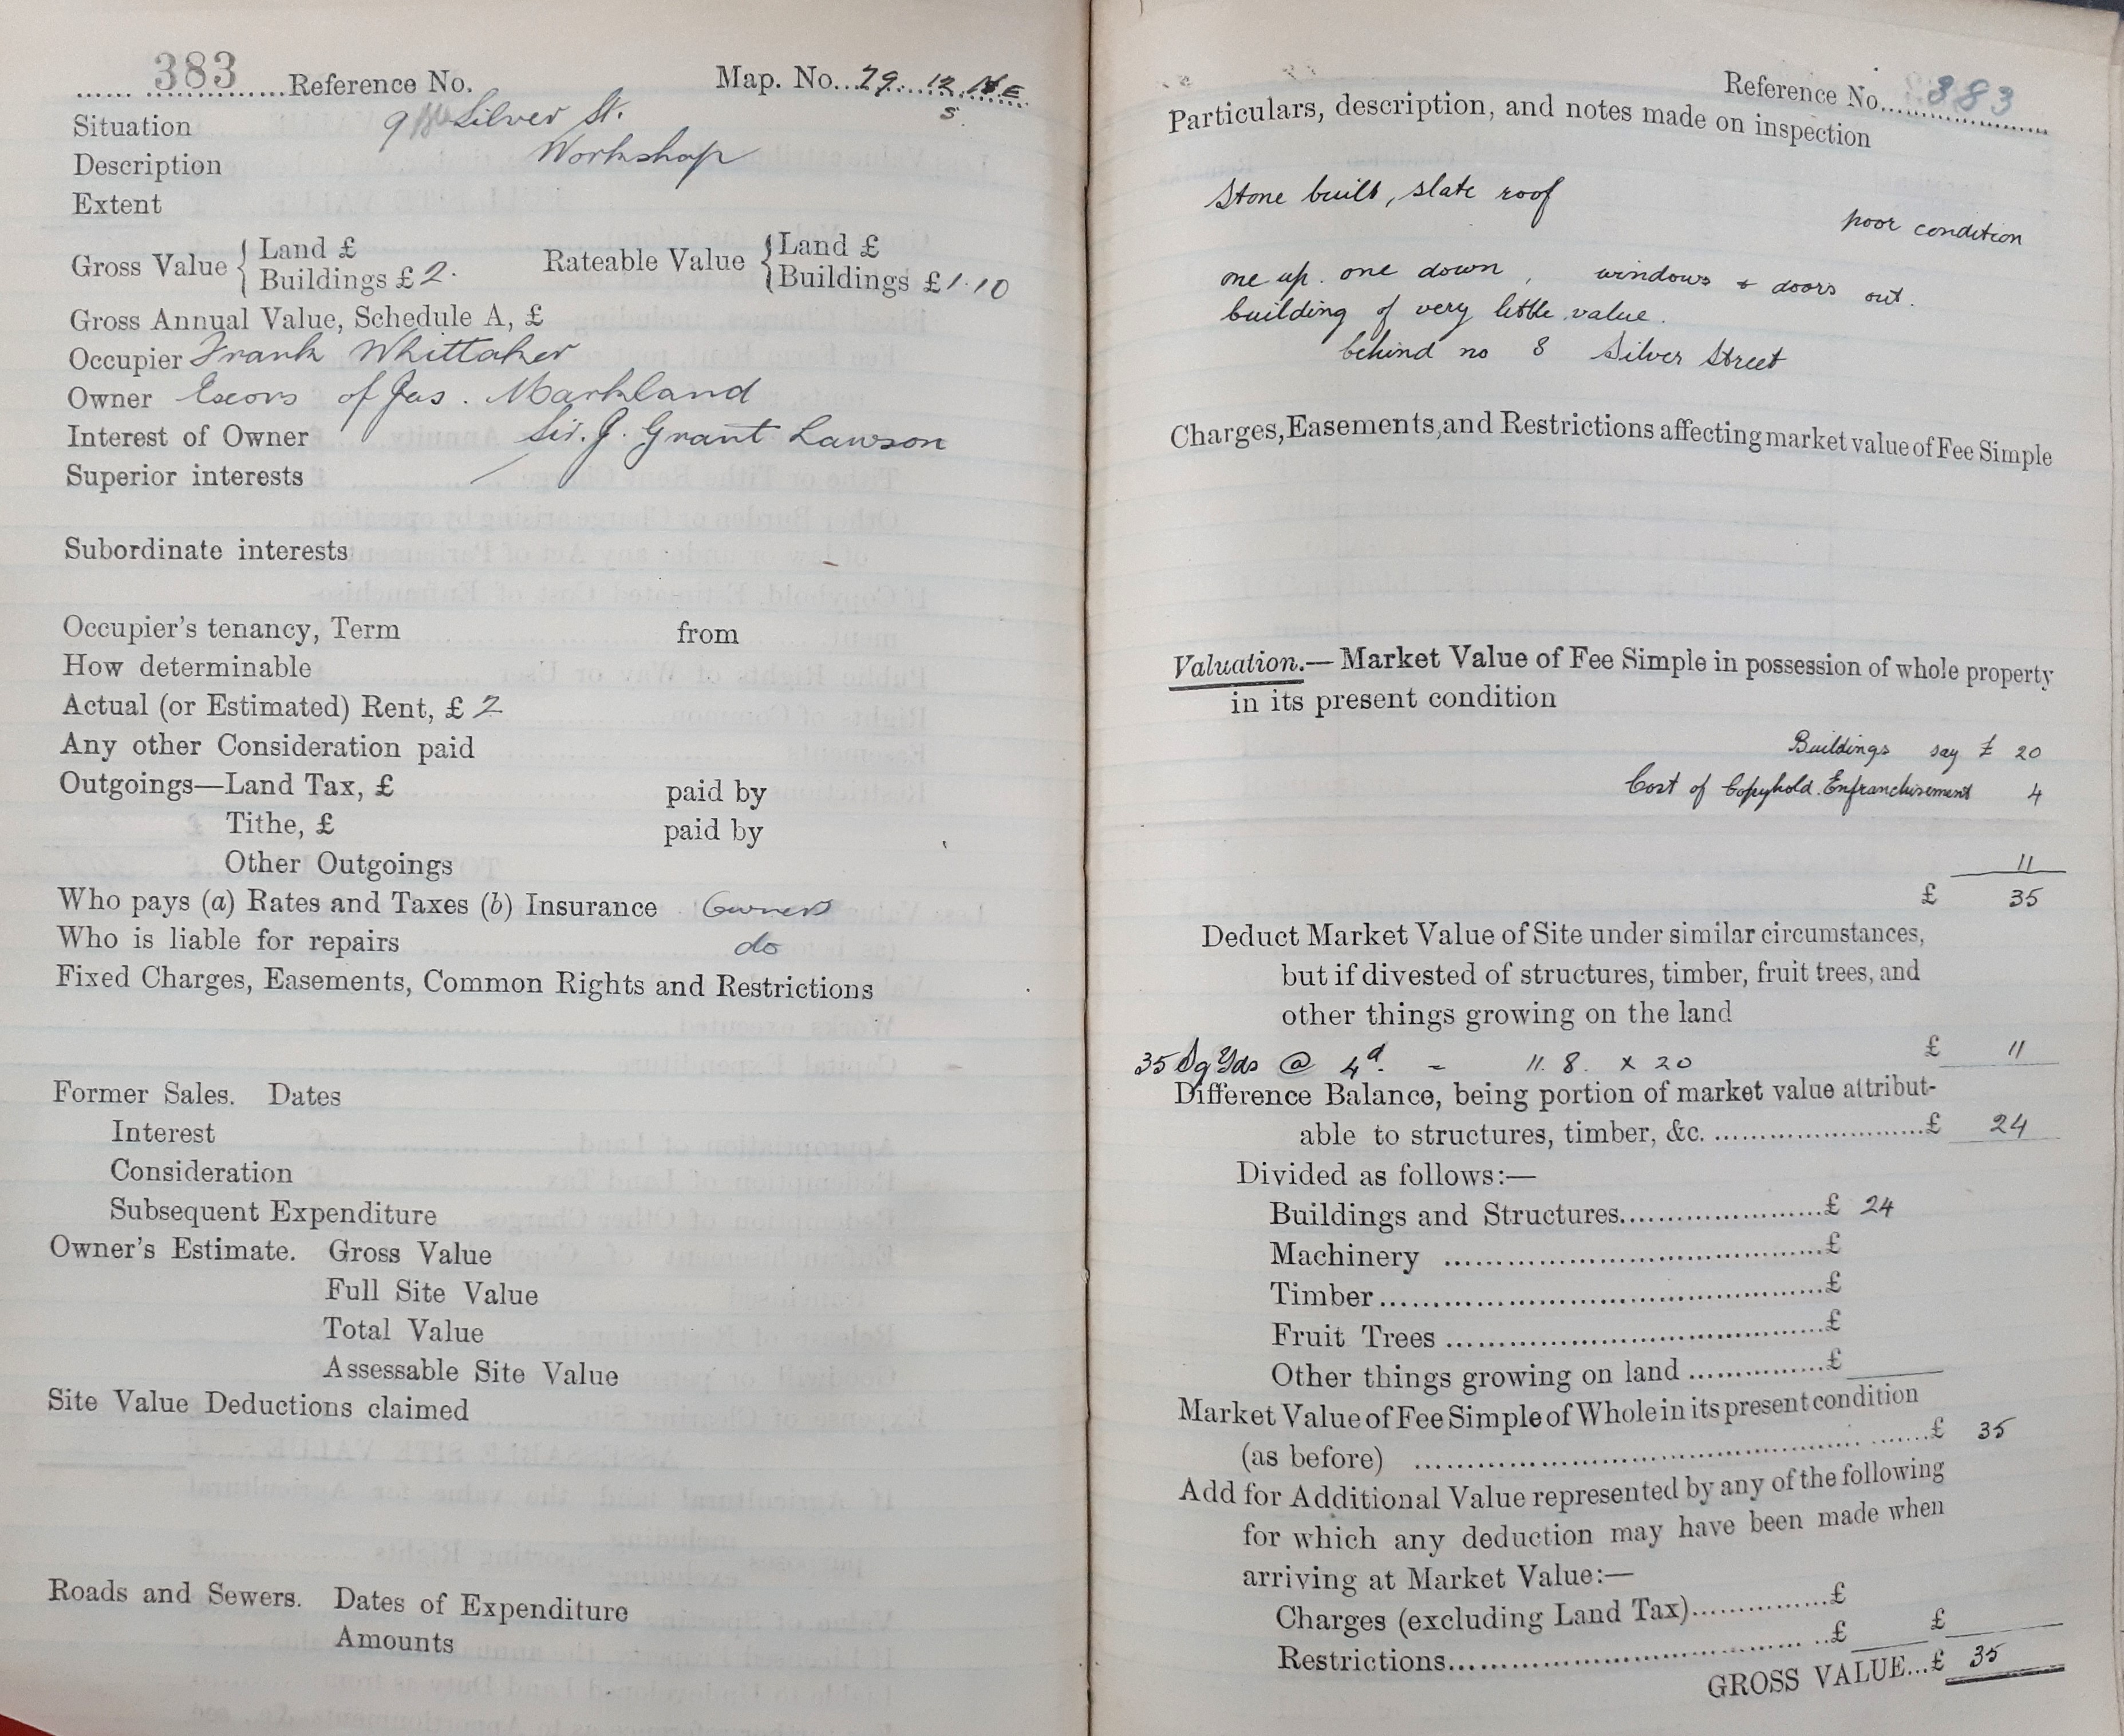 383 Reference No. Map. No. 29. 12 NE
S.
Situation 9 Silver St.
Description Workshop
Extent
Gross Value { Land £
Buildings £ 2. Rateable Value { Land £
Buildings £ 1.10
Gross Annual Value, Schedule A, £
Occupier Frank Whittaker
Owner Excors of Jas. Markland
Interest of Owner Sir. J. Grant Lawson
Superior interests
Subordinate interests
Occupier's tenancy, Term from
How determinable
Actual (or Estimated) Rent, £ 2
Any other Consideration paid
Outgoings—Land Tax, £ paid by
Tithe, £ paid by
Other Outgoings
Who pays (a) Rates and Taxes (b) Insurance Owners
Who is liable for repairs do
Fixed Charges, Easements, Common Rights and Restrictions
Former Sales. Dates
Interest
Consideration
Subsequent Expenditure
Owner's Estimate. Gross Value
Full Site Value
Total Value
Assessable Site Value
Site Value Deductions claimed
Roads and Sewers. Dates of Expenditure
Amounts
Reference No. 383
Particulars, description, and notes made on inspection
Stone built, slate roof
poor condition
one up. one down, windows & doors out.
building of very little value.
behind no 8 Silver Street
Charges, Easements, and Restrictions affecting market value of Fee Simple
Valuation.—Market Value of Fee Simple in possession of whole property
in its present condition
Buildings say £ 20
Cost of Copyhold Enfranchisement 4
11
£ 35
Deduct Market Value of Site under similar circumstances,
but if divested of structures, timber, fruit trees, and
other things growing on the land
35 Sq Yds @ 4d. - 11. 8. x 20 £ 11
Difference Balance, being portion of market value attribut-
able to structures, timber, &c. £ 24
Divided as follows:—
Buildings and Structures £ 24
Machinery £
Timber £
Fruit Trees £
Other things growing on land £
Market Value of Fee Simple of Whole in its present condition
(as before) £ 35
Add for Additional Value represented by any of the following
for which any deduction may have been made when
arriving at Market Value:—
Charges (excluding Land Tax) £
Restrictions £ £
GROSS VALUE...£ 35